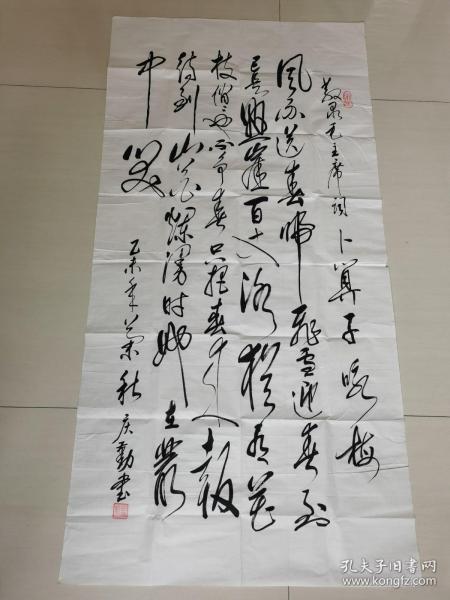 敬录毛主席词卜算子咏梅
风雨送春归飞雪迎春到
已是悬崖百丈冰犹有花
枝俏俏也不争春只把春来报
待到山花烂漫时她在丛
中笑
乙未年秋庆书
孔夫子旧书网
www.kongfz.com